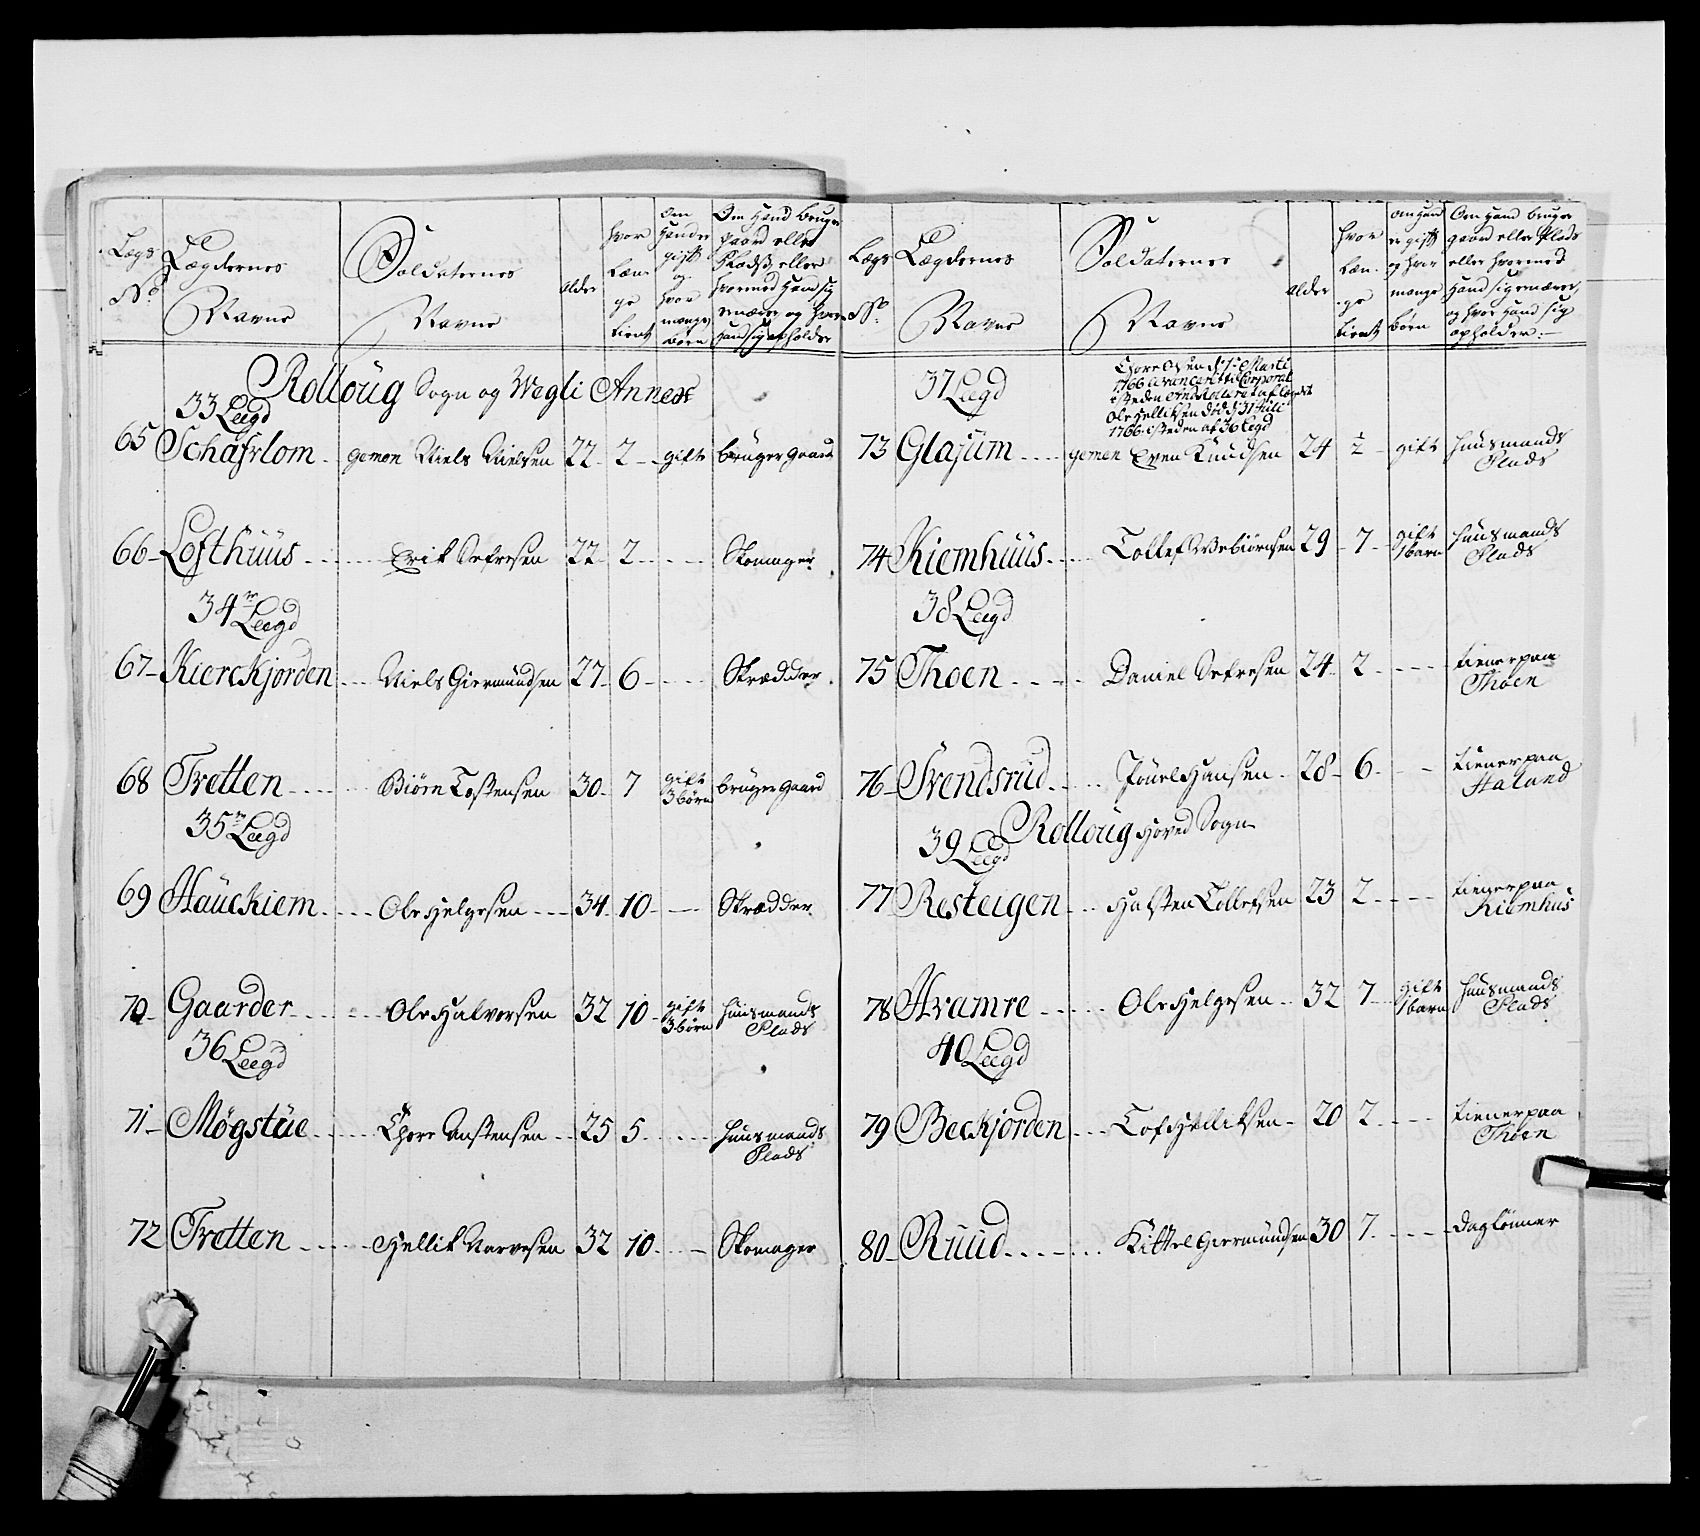 Lægs No | Lægdernes Navne | Soldaternes Navne | Alder | hvor Læn-ge tient | Om Hand er gift og hvor mange börn | Om Hand bruger gaard eller Plads, eller hvormed Hand sig ernærer, og hvor Hand sig opholder
Rolloug Sogn og Wegli Annex
33 Legd
65 Schafrlom - gemen Niels Nielsen 22 - 2 - gift bruger gaard
66 - Lofthuus - Erik Sefresen 22 - 2 - Skomager
34 Legd
67 - Kierckjorden - Niels Giermundsen 27 - 6 - Skrædder
68 Tretten - Biörn Tostensen 30 - 7 gift 3 börn bruger gaard
35 Legd
69 Hauckiem - Ole Helgesen - 34 - 10 - Skrædder
70 - Gaarder - Ole Halvorsen 32 10 - gift 3 börn huusmands Plads
36 Legd
71 - Møgstue - Thore Anstensen - 25 5 - huusmands Plads
72 Tretten - Hellik Narvesen 32 10 - Skomager
Lægs No | Lægdernes Navne | Soldaternes Navne | Alder | hvor Læn-ge tient | Om Hand er gift og hvor mange börn | Om Hand bruger gaard eller Plads eller hvormed Hand sig ernærer, og hvor Hand sig opholder
37 Legd
1766 avancert til Corporal
Ole Helliksen död d: 31 Juli
1766 isteden af 36 Legd
73 Glajum - gemen Even Knudsen 24 ½ - gift huusmands Plads
74 Kiemhuus - Tollef Webiörnsen 29 - 7 - gift 1 barn huusmands Plads
38 Legd
75 Thoen - Daniel Sefresen 24 - 2 - tiener paa Thoen
76 - Svendsrud - Poul Hansen - 28 - 6 - tiener paa Haland
Rolloug Hoved Sogn
39 Legd
77 Resteigen - Halsten Tollefsen 23 2 - tiener paa Kiemhus
78 Hvamre - Ole Helgesen - 32 7 - gift 1 barn huusmands Plads
40 Legd
79 Beckjorden - Tof Helliksen - 20 2 - tiener paa Thoen
80 - Ruud - Kittel Giermundsen 30 7 - Daglönner